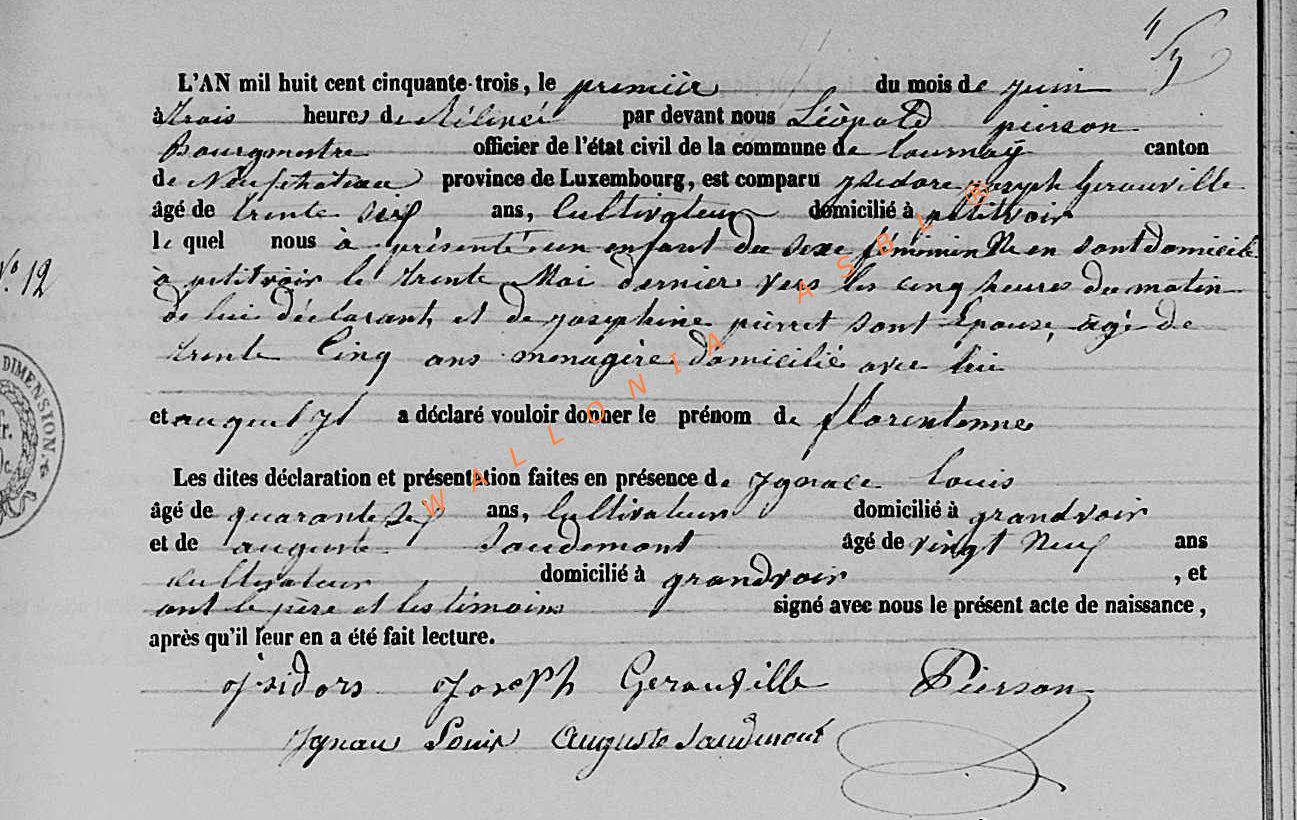 4/5
L'AN mil huit cent cinquante-trois, le premièr du mois de juin
à trois heures de Rélevé par devant nous Léopold pierson
Bourgmestre officier de l'état civil de la commune de tournay canton
de Neufchateau province de Luxembourg, est comparu ysidore joseph Gerouville
âgé de trente six ans, Cultivateur domicilié à petitvoir
le quel nous à présenté un enfant du sexe féminin Né en sont domicile
N° 12
à petitvoir le trente Mai dernier vers les cinq heures du matin
de lui déclarant, et de josephine pierret sont Epouse, agé de
trente Cinq ans menagère domicilié avec lui
DIMENSION
et auquel il a déclaré vouloir donner le prénom de florentinne
Les dites déclaration et présentation faites en présence de Ignace Louis
âgé de quarante ans, Cultivateur domicilié à grandvoir
et de auguste Saudemont âgé de vingt Neuf ans
cultivateur domicilié à grandvoir , et
ont le père et les témoins signé avec nous le présent acte de naissance,
après qu'il leur en a été fait lecture.
Joseph Gerouville Pierson
Louis Auguste Saudmont
WALLONIA ASBL B